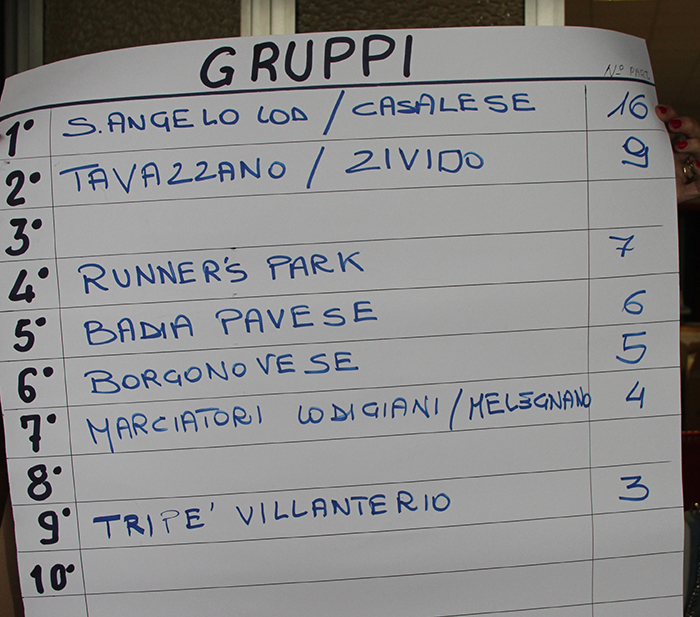 GRUPPI
N° PART.
1° S. ANGELO LOD / CASALESE 16
2° TAVAZZANO / ZIVIDO 9
3°
4° RUNNER'S PARK 7
5° BADIA PAVESE 6
6° BORGONOVESE 5
7° MARCIATORI LODIGIANI / MELEGNANO 4
8°
9° TRIPE' VILLANTERIO 3
10°